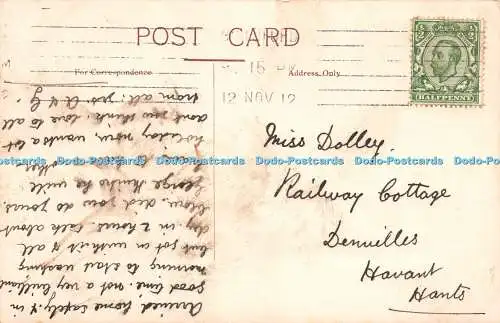 POST CARD
For Correspondence
Address Only
15
12 NOV 12
HALFPENNY
Miss Dolley.
Railway Cottage
Denvilles
Havant
Hants
Arrived home safely & in
good time. not a very brilliant
morning to start washing
but got on with it & all
dry in 2 hours. talk about
blow, did you do yours.
George thinks he will
holiday now, wants a lot
dont you think love to all
from all. yrs A & G.
Dodo-Postcards Dodo-Postcards Dodo-Postcards Dodo-Postcards Dodo-Postcards Dodo-Postcards